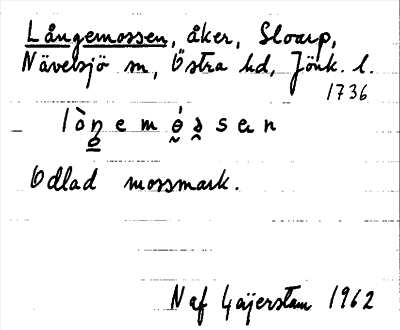 Långemossen, åker, Sloarp,
Nävelsjö sn, Östra hd, Jönk. l.
1736
Odlad mossmark.
N af Geijerstam 1962